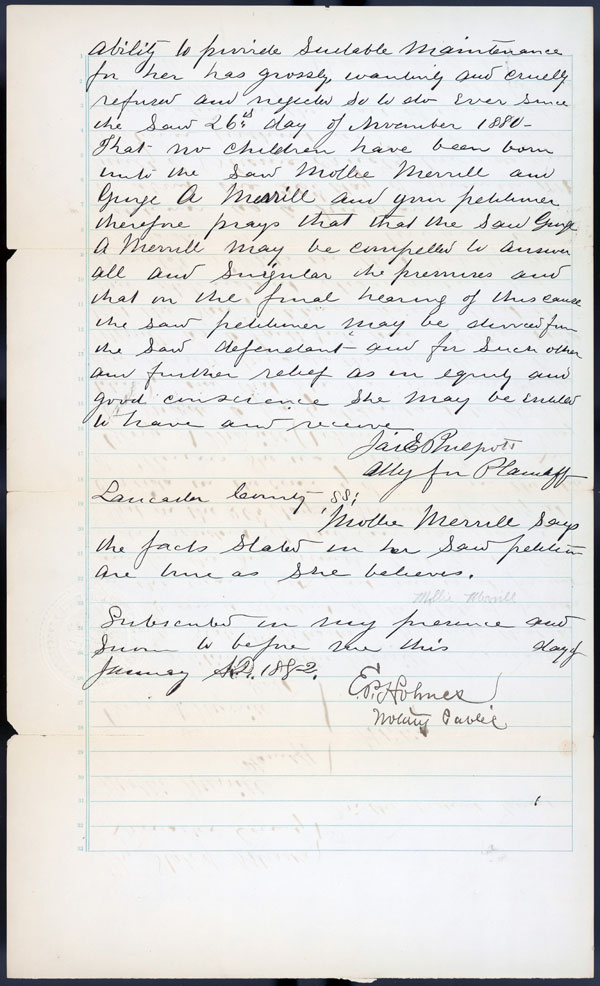 ability to provide Suitable Maintenance
for her has grossly, wantonly and cruelly
refused and neglected so to do Ever Since
the Said 26th day of November 1880-
That no children have been born
unto the Said Mollie Merrill and
George A Merrill and your petitioner
therefore prays that that the Said George
A Merrill may be compelled to answer
all and Singular the premises and
that on the final hearing of this cause
the said petitioner may be divorced from
the Said defendant and for Such other
and further relief as in equity and
good conscience She may be entitled
to have and receive
Jas E Philpott
Atty for Plaintiff
Lancaster County SS;
Mollie Merrill Says
the facts Stated in her Said petition
are true as She believes.
Mollie Merrill
Subscribed in my presence and
Sworn to before me this day of
January A.D. 1882.
E.P. Holmes
Notary Public